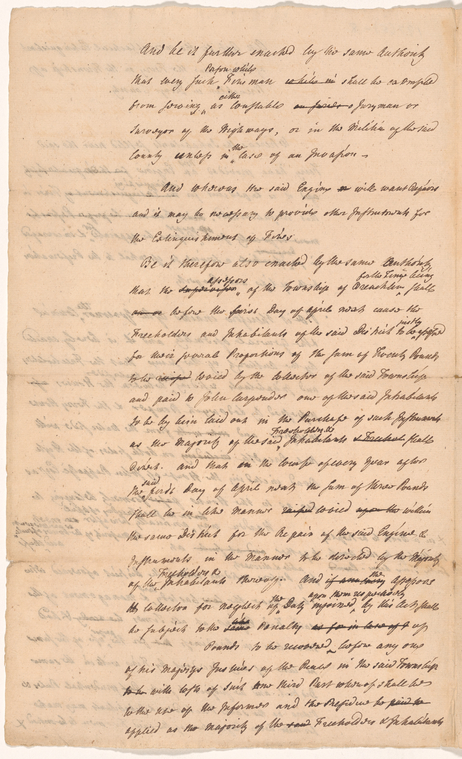 And be it further enacted by the same Authority
Person while
that every such Fireman shall be exempted
either
from serving as Constable Juryman or
Surveyor of the Highways, or in the Militia of the said
the
County unless in Case of an Invasion.
And whereas the said Engine will want Repairs
and it may be necessary to provide other Instruments for
the Extinguishment of Fires
Be it therefore also enacted by the same Authority
Assessors for the Time being
that the Supervisor, of the Township of shall
before the first Day of April next cause the
to be
Freeholders and Inhabitants of the said District assessed
for their several Proportions of the Sum of Twenty Pounds
to be raised levied by the Collector of the said Township
and paid to John one of the said Inhabitants
to be by him laid out in the Purchase of such Instruments
Freeholders &
as the Majority of the said Inhabitants & Freehol. shall
direct. and that in the Course of every Year after
said
the first Day of April next the Sum of three Pounds
shall be in like Manner raised levied within
the same District for the Repair of the said Engine &
Instruments in the Manner to be directed by the Majority
Freeholders &
of the Inhabitants thereof. And
the upon them
Collector for neglect of Duty by this Act shall
be subject to the Penalty of
Pounds to be recovered before any one
of his Majestys Justices of the Peace in the said Township
with Costs of Suit One third Part whereof shall be
to the use of the Informer and the Residue to be
applied as the Majority of the said Freeholders & Inhabitants